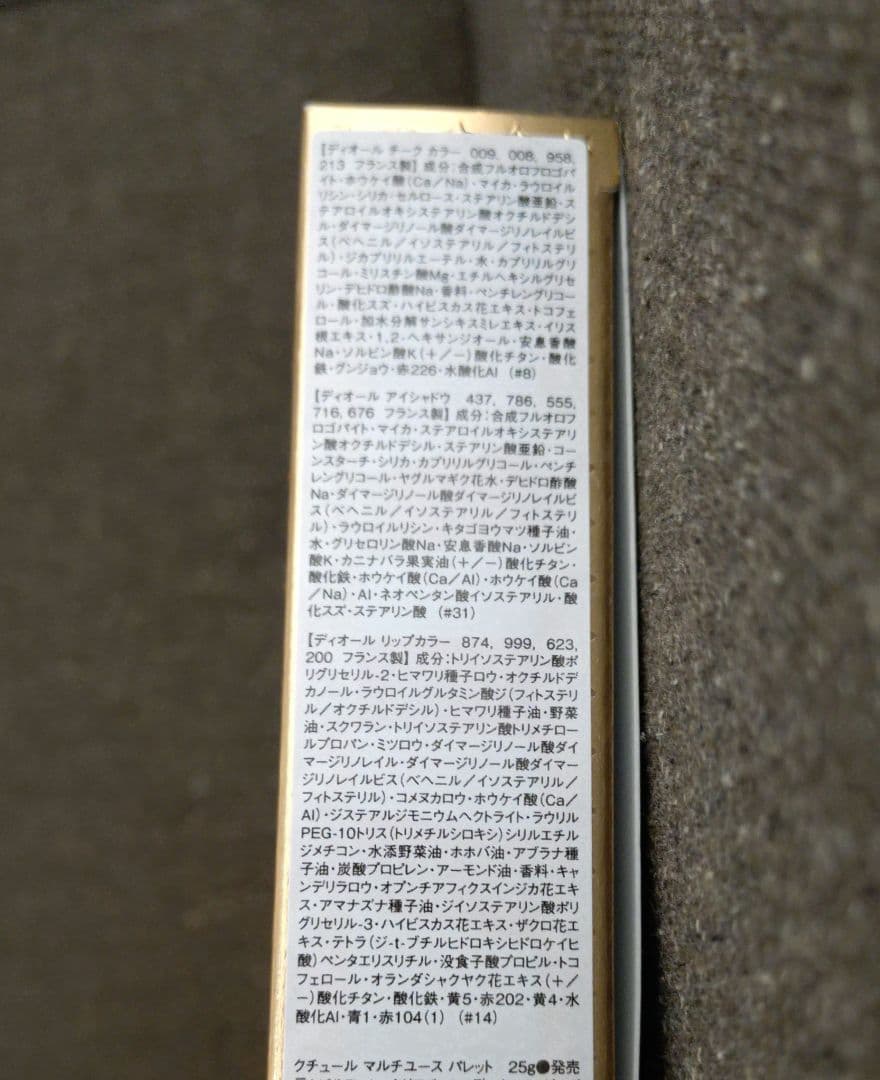 【ディオール チーク カラー 009, 008, 958,
213 フランス製】成分:合成フルオロフロゴパ
イト・ホウケイ酸(Ca/Na)・マイカ・ラウロイル
リシン・シリカ・セルロース・ステアリン酸亜鉛・ス
テアロイルオキシステアリン酸オクチルドデシ
ル・ダイマージリノール酸ダイマージリノレイルビ
ス(ベヘニル/イソステアリル/フィトステリ
ル)・ジカプリリルエーテル・水・カプリリルグリ
コール・ミリスチン酸Mg・エチルヘキシルグリセ
リン・デヒドロ酢酸Na・香料・ペンチレングリコー
ル・酸化スズ・ハイビスカス花エキス・トコフェ
ロール・加水分解サンシキスミレエキス・イリス
根エキス・1,2-ヘキサンジオール・安息香酸
Na・ソルビン酸K(+/−)酸化チタン・酸化
鉄・グンジョウ・赤226・水酸化Al (#8)
【ディオール アイシャドウ 437, 786, 555,
716, 676 フランス製】成分:合成フルオロフ
ロゴパイト・マイカ・ステアロイルオキシステアリ
ン酸オクチルドデシル・ステアリン酸亜鉛・コー
ンスターチ・シリカ・カプリリルグリコール・ペンチ
レングリコール・ヤグルマギク花水・デヒドロ酢酸
Na・ダイマージリノール酸ダイマージリノレイルビ
ス(ベヘニル/イソステアリル/フィトステリ
ル)・ラウロイルリシン・キタゴヨウマツ種子油・
水・グリセロリン酸Na・安息香酸Na・ソルビン
酸K・カニナバラ果実油(+/−)酸化チタン・
酸化鉄・ホウケイ酸(Ca/Al)・ホウケイ酸(Ca
/Na)・Al・ネオペンタン酸イソステアリル・酸
化スズ・ステアリン酸 (#31)
【ディオール リップカラー 874, 999, 623,
200 フランス製】成分:トリイソステアリン酸ポ
リグリセリル-2・ヒマワリ種子ロウ・オクチルドデ
カノール・ラウロイルグルタミン酸ジ(フィトステリ
ル/オクチルドデシル)・ヒマワリ種子油・野菜
油・スクワラン・トリイソステアリン酸トリメチロー
ルプロパン・ミツロウ・ダイマージリノール酸ダイ
マージリノレイル・ダイマージリノール酸ダイマー
ジリノレイルビス(ベヘニル/イソステアリル/
フィトステリル)・コメヌカロウ・ホウケイ酸(Ca/
Al)・ジステアルジモニウムヘクトライト・ラウリル
PEG-10トリス(トリメチルシロキシ)シリルエチル
ジメチコン・水添野菜油・ホホバ油・アブラナ種
子油・炭酸プロピレン・アーモンド油・香料・キャ
ンデリラロウ・オプンチアフィクスインジカ花エキ
ス・アマナズナ種子油・ジイソステアリン酸ポリ
グリセリル-3・ハイビスカス花エキス・ザクロ花エ
キス・テトラ(ジ-t-ブチルヒドロキシヒドロケイヒ
酸)ペンタエリスリチル・没食子酸プロピル・トコ
フェロール・オランダシャクヤク花エキス(+/
−)酸化チタン・酸化鉄・黄5・赤202・黄4・水
酸化Al・青1・赤104(1) (#14)
クチュール マルチユース パレット 25g●発売